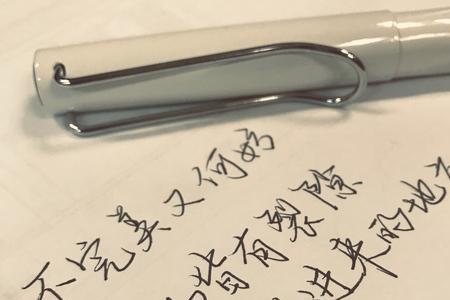 不完美又何妨
皆有裂隙
进来的地